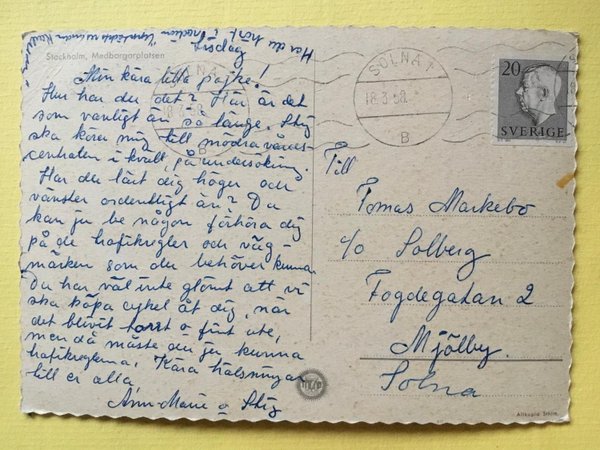 Har du hört i radion Upptäckten under
Tisdag
Stockholm, Medborgarplatsen
Min kära lilla pojke!
Hur har du det? Här är det
som vanligt än så länge. Stig
ska köra mig till mödravårds-
centralen i kväll, på undersökning.
Har du lärt dig höger och
vänster ordentligt än? Du
kan ju be någon förhöra dig
på de trafikregler och väg-
märken som du behöver kunna
Du har väl inte glömt att vi
ska köpa cykel åt dig, när
det blivit torrt o fint ute,
men då måste du ju kunna
trafikreglerna. Kära hälsningar
till er alla,
Ann-Marie o Stig
SOLNA 1
18.3.58.
B
20
SVERIGE
Till
Tomas Markebo
c/o Solberg
Fogdegatan 2
Mjölby.
Solna